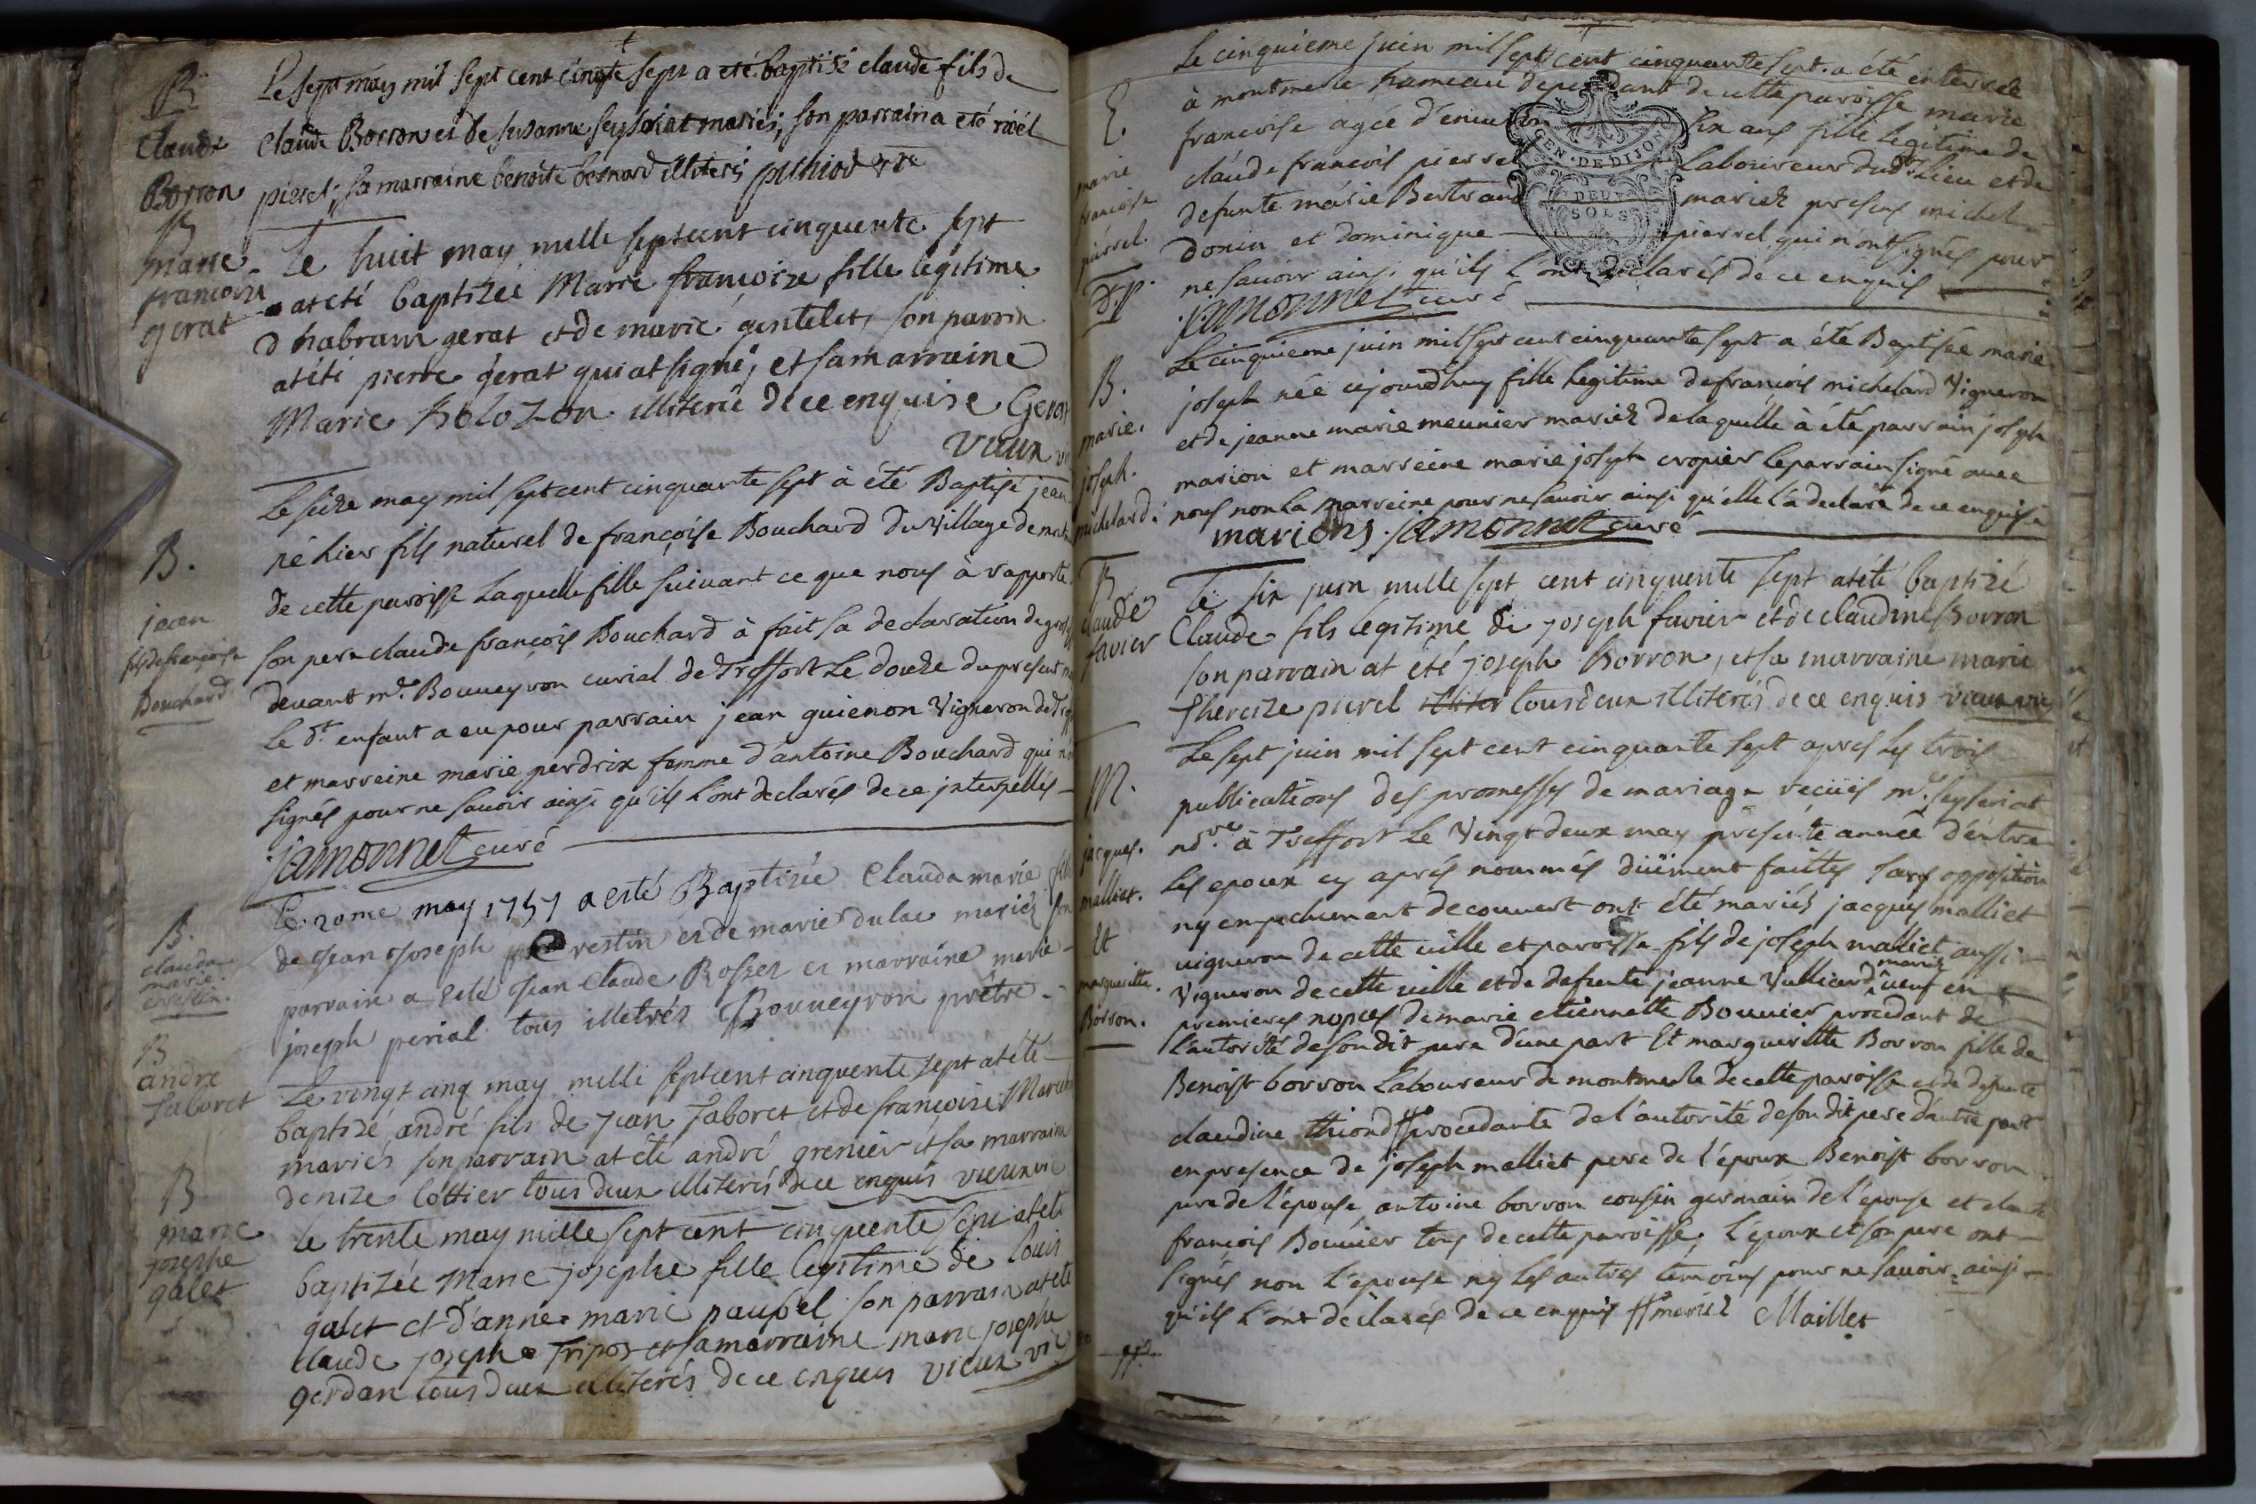 B
Claude
Borron
Le sept may mil sept cent cinqte sept a eté baptisé claude fils de
claude Borron et de susanne seyseriat mariés; son parrain a eté
pierrel; sa marraine benoite bernard illiterés
B
marie
francoize
gerat
Le huit may mille sept cent cinquente sept
at eté baptizéé Marie francoize fille legitime
d habram gerat et de marie gentelet, son parrin
at eté pierre gerat qui at signé, et sa marraine
Marie illiteré de ce enquise Gerat
vieux
B.
jean
fils de françoise
Bouchard
Le seize may mil sept cent cinquante sept à été Baptisé jean
né hier fils naturel de françoise Bouchard du village de
de cette paroisse Laquelle fille suivant ce que nous à rapporté
son pere claude françois Bouchard à fait sa declaration de
devant mr. Bouveyron curial de Treffort Le douze du present
Le dt. enfant a eu pour parrain jean guienon Vigneron de
et marreine marie perdrix femme d'antoine Bouchard que
signés pour ne savoir ainsi qu'ils l'ont declarés de ce interpellés
jamonnet curé
B.
clauda
marie
Le 20me may 1757 a esté Baptizée Clauda marie
de Jean Joseph et de marie dulac mariéz son
parrain a esté Jean Claude Rosset et marraine marie
joseph perial tous illetrés Bouveyron prêtre
B
andre
Faboret
Le vingt cinq may mille sept cent cinquente sept at été
baptizé andré fils de jean Faboret et de francoize
mariés, son parrain at été andré grenier et sa marraine
denize Cottier tous deux illiterés de ce enquis vieux vic
B
marie
josephe
galet
le trente may mille sept cent cinquente sept at eté
baptizéé Marie josephe fille legitime de louis
galet et d'anne marie paubel son parrain at eté
claude joseph Fripoz et sa marraine marie josephe
gerdan tous deux illiterés de ce enquis vieux vic
E.
marie
francoise
pierrel.
Le cinquieme juin mil sept cent cinquante sept a été enterrée
à montmerle hameau dependant de cette paroisse marie
francoise agée d'environ six ans fille Legitime de
claude francois pierrel Laboureur dudt Lieu et de
defunte marie Bertrand mariez presens michel
Donin et dominique pierrel qui n'ont signés pour
ne savoir ainsi qu'ils l'ont declarés de ce enquis
jamonnet curé
GEN. DE DIJON
DEUX
SOLS
B.
marie.
joseph.
michelard.
Le cinquieme juin mil sept cent cinquante sept a été Baptisée marie
joseph née cejourd'huy fille legitime de francois michelard Vigneron
et de jeanne marie meunier mariez de laquelle à été parrain joseph
marion et marreine marie joseph cropier Le parrain signé avec
nous non La marreine pour ne savoir ainsi qu'elle l'a declaré de ce enquise
marions. jamonnet curé
B
claude
favier
Le six juin mille sept cent cinquente sept at été baptizé
Claude fils legitime de joseph favier et de claudine Borron
son parrain at été joseph Borron, et sa marraine marie
therezize pierel tous deux illiterés de ce enquis vieux vic
M.
jacques.
malliet.
Et
marguerite.
Borron.
Le sept juin mil sept cent cinquante sept apres les trois
publications des promesses de mariage reçües mr. seyseriat
nore. à Treffort Le Vingt deux may presente année d'entre
Les epoux cy après nommés düement faittes sans opposition
ny empechement decouvert ont été mariés jacques malliet
vigneron de cette ville et paroisse fils de joseph malliet aussi
Vigneron de cette ville et de defunte jeanne Vulliard mariez veuf en
premieres nopces de marie etiennette Bouvier procedant de
l'autorité de son dit pere d'une part Et margueritte Borron fille de
Benoist borron Laboureur de montmerle de cette paroisse et de defunte
claudine thiond # procedante de l'autorité de son dit pere d'autre part
en presence de joseph malliet pere de l'époux Benoist borron
pere de l'épouse antoine borron cousin germain de l'epouse et
françois Bouvier tous de cette paroisse, L'époux et son pere ont
signés non l'epouse ny les autres temoins pour ne savoir ainsi
qu'ils l'ont declarés de ce enquis # mariez Maillet